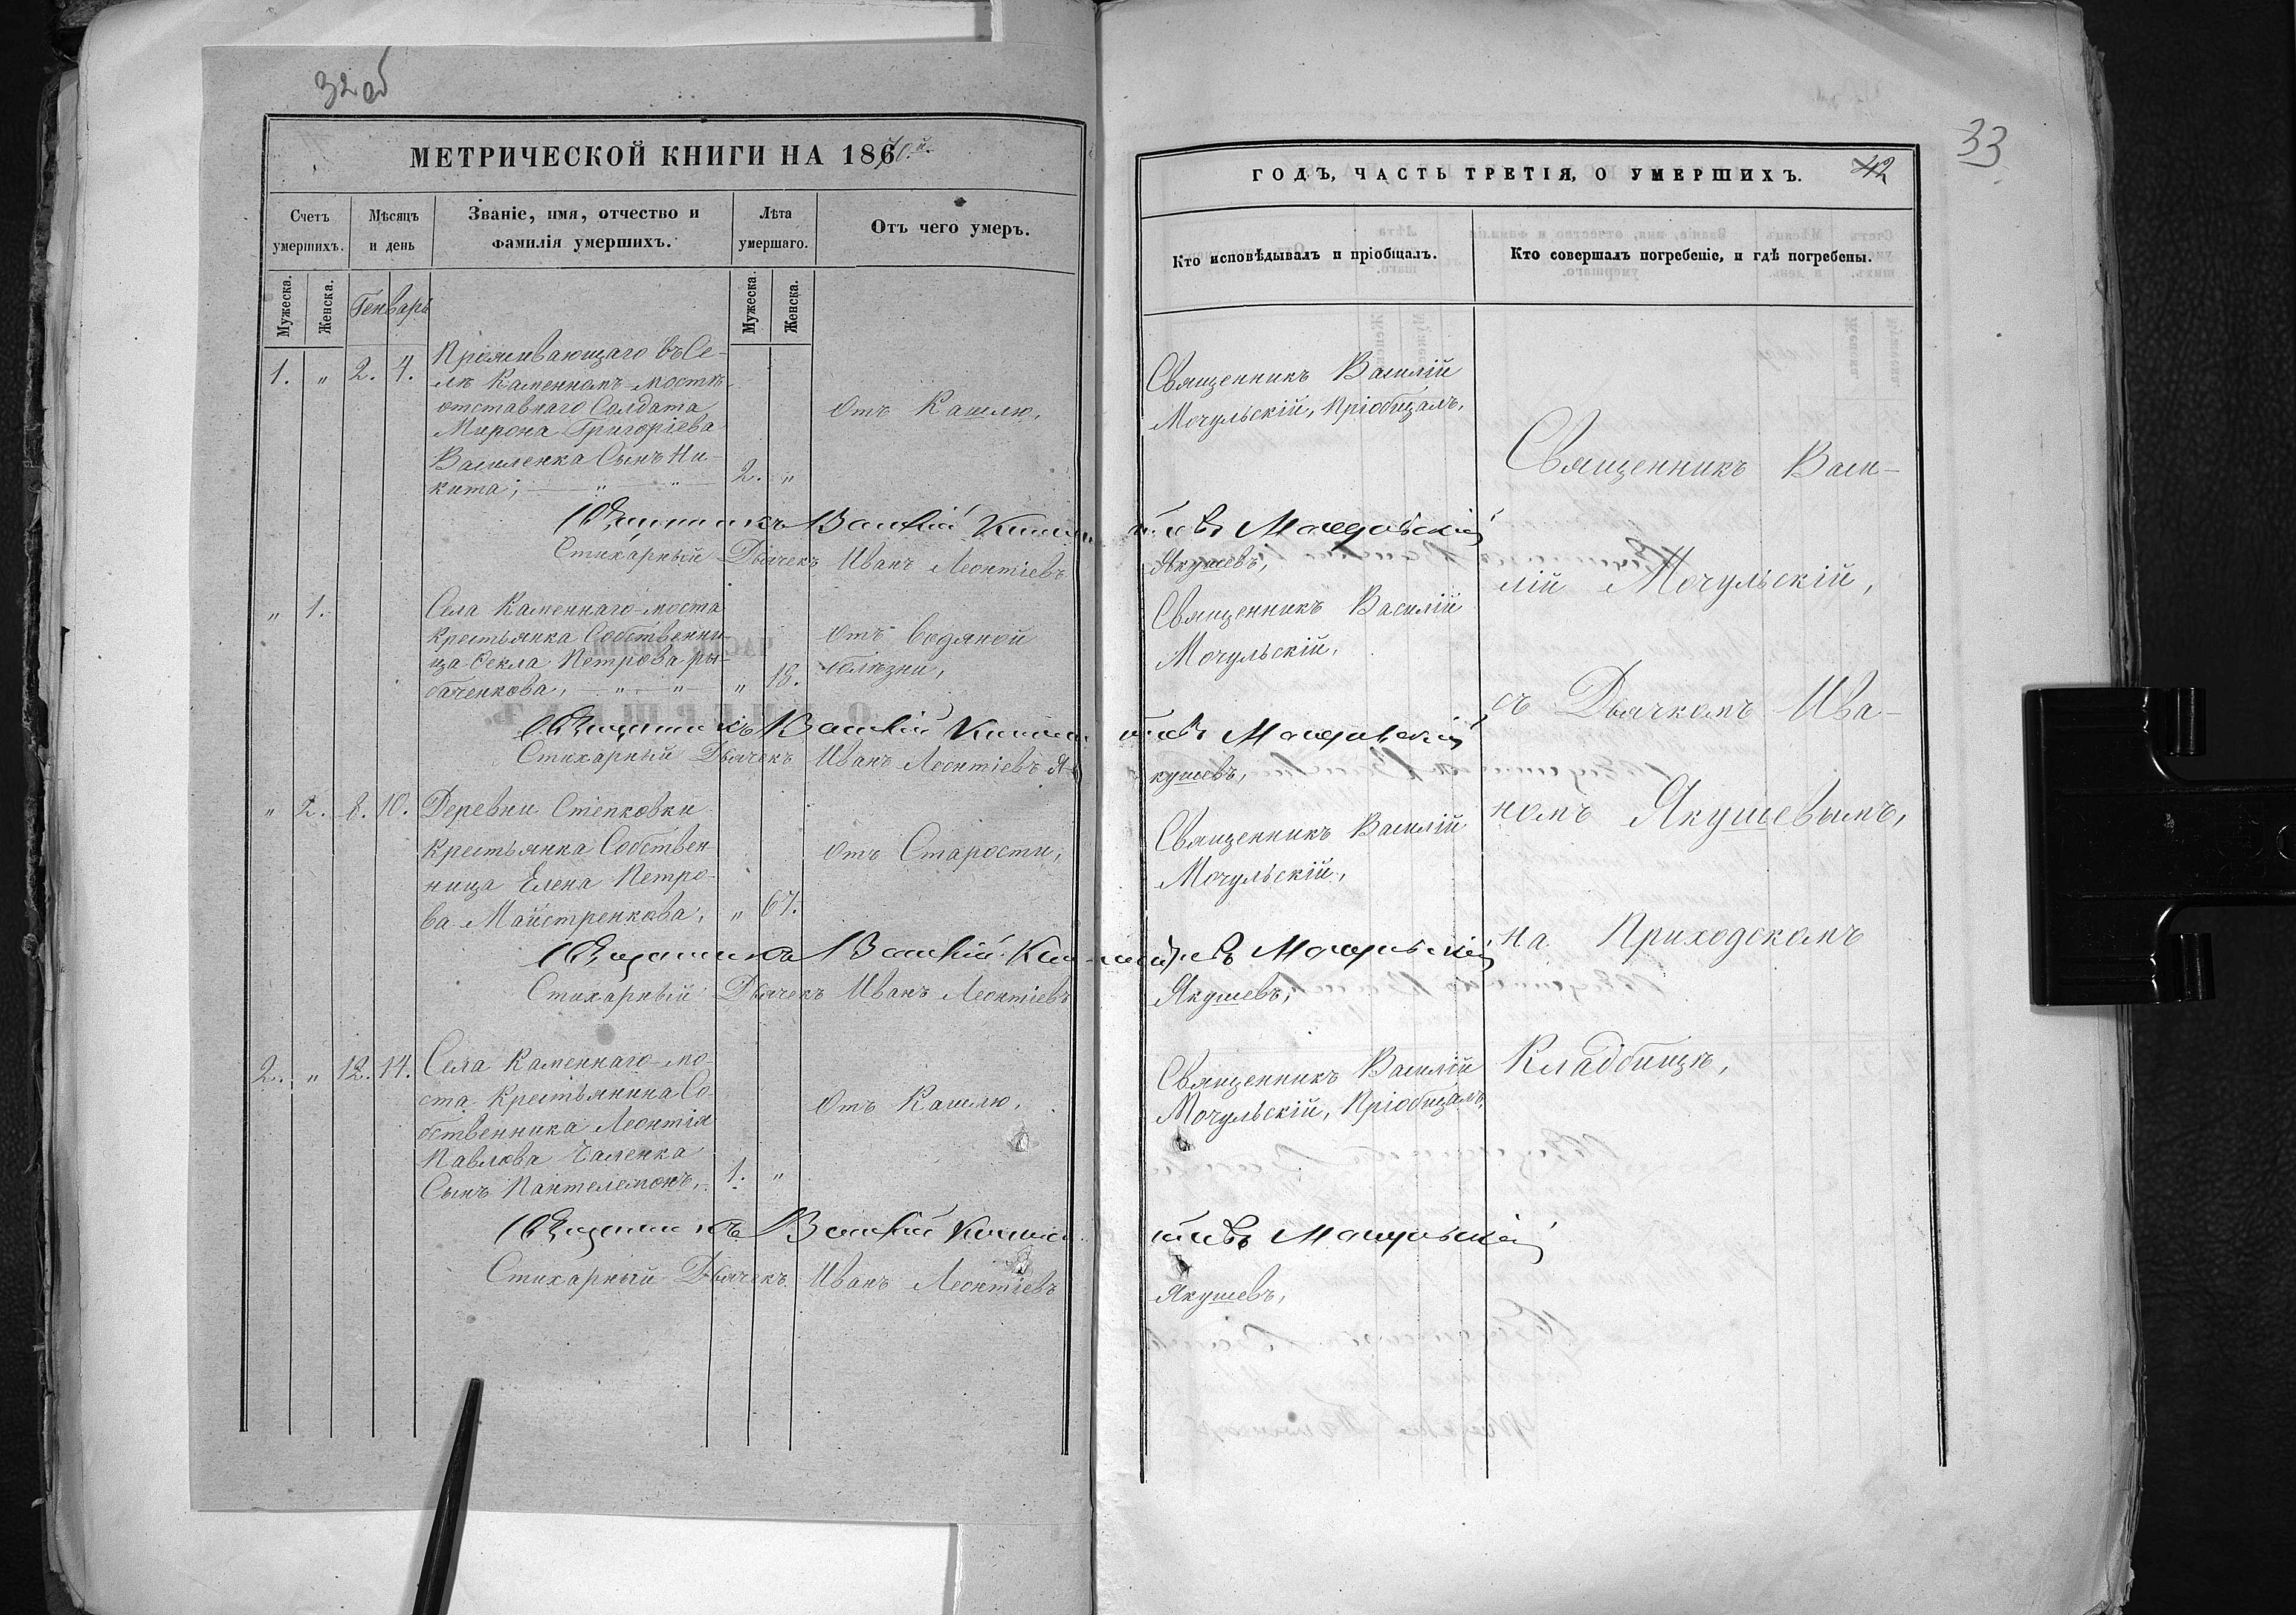 32 об
МЕТРИЧЕСКОЙ КНИГИ НА 1870.й
Счетъ умершихъ.
Мѣсяцъ и день
Званіе, имя, отчество и фамилія умершихъ.
Лѣта умершаго.
Отъ чего умеръ.
Мужеска.
Женска.
Генварь
Мужеска.
Женска.
1. " 2. 4. Проживающаго въ Се-
лѣ Каменномъ-мостѣ
отставнаго Солдата
Мирона Григоріева
Василенка Сынъ Ни-
кита; 2. "
Отъ Кашлю,
Священникъ Василій
Стихарный Дьячекъ Иванъ Леонтіевъ
" 1. Села Каменнаго-моста
Крестьянка Собственни-
ца Ѳекла Петрова Ры-
баченкова, " 18.
Отъ водяной
болѣзни,
Священникъ Василій
Стихарный Дьячекъ Иванъ Леонтіевъ Я-
" 2. 8. 10. Деревни Стѣпковки
Крестьянка Собствен
ница Елена Петро-
ва Майстренкова, " 67.
Отъ Старости,
Священникъ Василій
Стихарный Дьячекъ Иванъ Леонтіевъ
2. " 12. 14. Села Каменнаго-мо-
ста Крестьянина Со-
бственника Леонтія
Павлова
Сынъ Пантелемонъ, 1. "
Отъ Кашлю,
Священникъ Василій
Стихарный Дьячекъ Иванъ Леонтіевъ
33
42
ГОДЪ, ЧАСТЬ ТРЕТІЯ, О УМЕРШИХЪ.
Кто исповѣдывалъ и пріобщалъ.
Кто совершалъ погребеніе, и гдѣ погребены.
Священникъ Василій
Мочульскій, Пріобщалъ,
Мочульскій
Якушевъ,
Священникъ Василій
Мочульскій,
Мочульскій
кушевъ,
Священникъ Василій
Мочульскій,
Мочульскій
Якушевъ,
Священникъ Василій
Мочульскій, Пріобщалъ,
Мочульскій
Якушевъ,
Священникъ Васи-
лій Мочульскій,
съ Дьячкомъ Ива-
номъ Якушевымъ,
на Приходскомъ
Кладбищѣ,